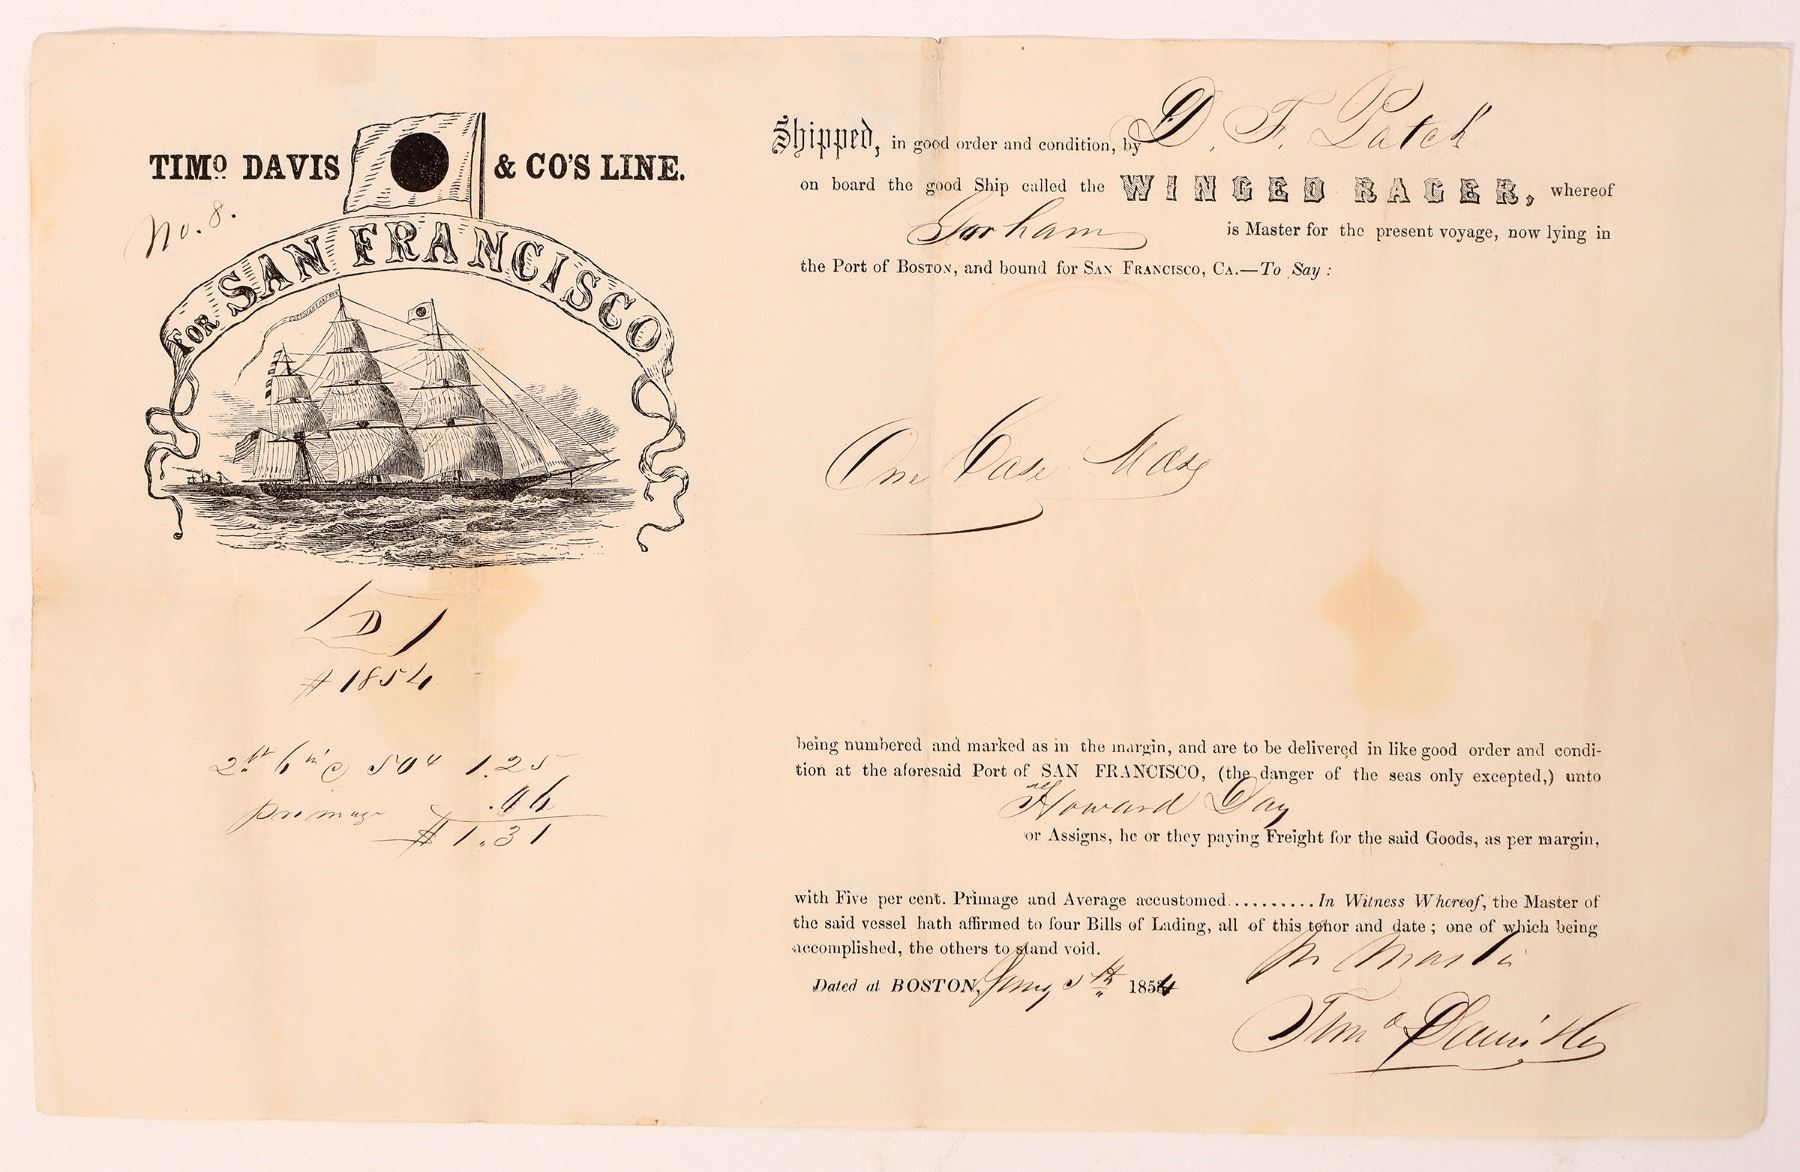 TIMO. DAVIS & CO'S LINE.
No. 8.
for SAN FRANCISCO
D
# 1854
2 ft 6 in @ 50c 1.25
primage .06
$1.31
Shipped, in good order and condition, by D. F. Patch
on board the good Ship called the WINGED RACER, whereof
Gorham is Master for the present voyage, now lying in
the Port of BOSTON, and bound for SAN FRANCISCO, CA.—To Say:
One Case Mdse
being numbered and marked as in the margin, and are to be delivered in like good order and condi-
tion at the aforesaid Port of SAN FRANCISCO, (the danger of the seas only excepted,) unto
Howard Day
or Assigns, he or they paying Freight for the said Goods, as per margin,
with Five per cent. Primage and Average accustomed..........In Witness Whereof, the Master of
the said vessel hath affirmed to four Bills of Lading, all of this tenor and date; one of which being
accomplished, the others to stand void.
Dated at BOSTON, Jany 5th 1854
Timo Davis & Co